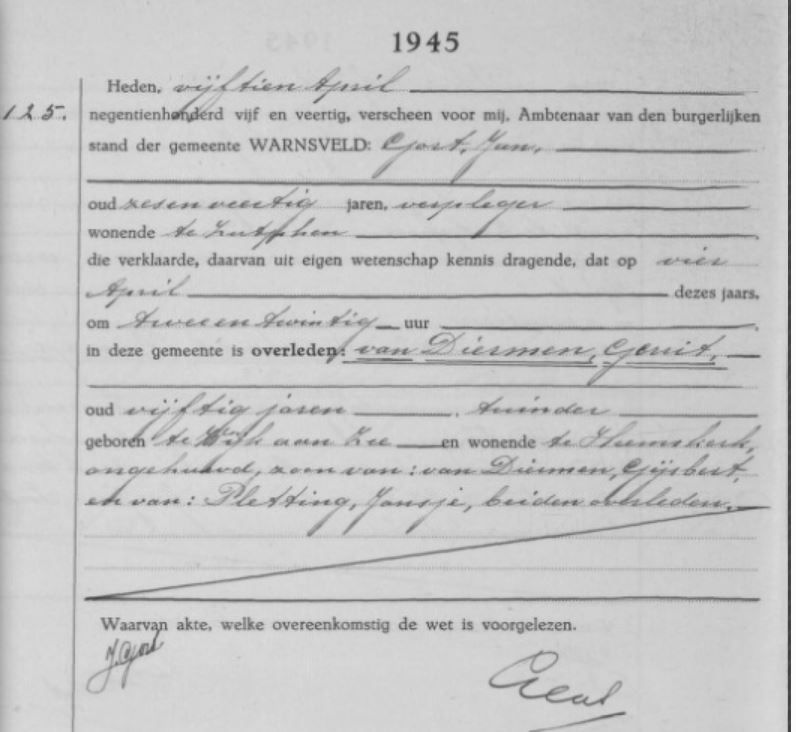 1945
Heden, vijftien April
125. negentienhonderd vijf en veertig, verscheen voor mij, Ambtenaar van den burgerlijken
stand der gemeente WARNSVELD: Gort, Jan,
oud zesenveertig jaren, verpleger
wonende te Zutphen
die verklaarde, daarvan uit eigen wetenschap kennis dragende, dat op vier
April dezes jaars,
om tweeentwintig uur
in deze gemeente is overleden: van Diermen, Gerrit,
oud vijftig jaren, tuinder
geboren te Wijk aan Zee en wonende te Heemskerk,
ongehuwd, zoon van: van Diermen, Gijsbert,
en van: Pletting, Jansje, beiden overleden.
Waarvan akte, welke overeenkomstig de wet is voorgelezen.
J. Gort